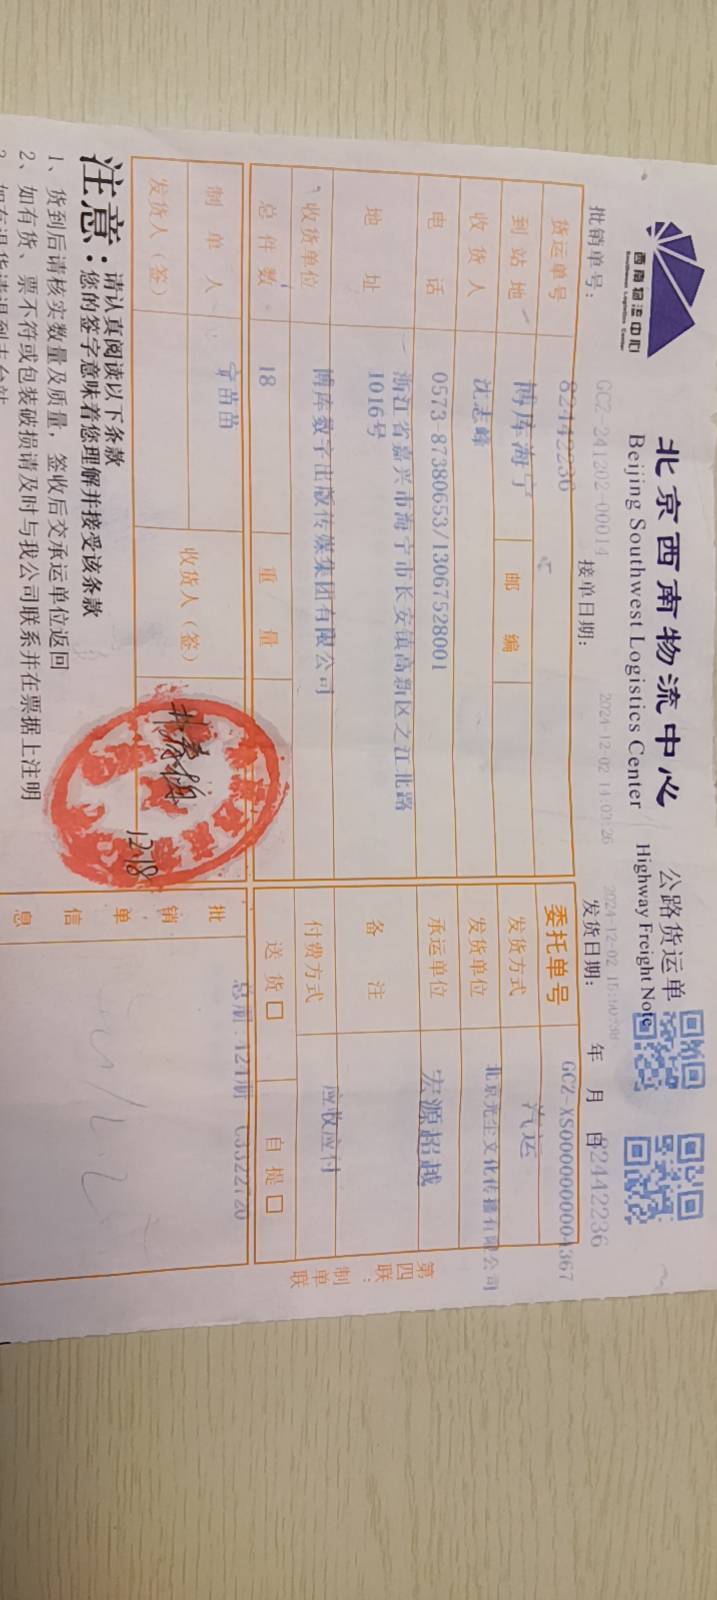 西南物流中心
Southwest Logistics Center
北京西南物流中心
Beijing Southwest Logistics Center
公路货运单
Highway Freight Note
批销单号: GCZ-241202-00014 接单日期: 2024-12-02 14:03:26 发货日期: 年 月 日 82442236
2024-12-02
货运单号 82442236 委托单号 GCZ-XS0000000004367
到站地 博库海宁 邮编 发货方式 汽运
收货人 沈志峰 发货单位 北京光尘文化传播有限公司
电话 0573-87380653/13067528001 承运单位 宏源超越
地址 浙江省嘉兴市海宁市长安镇高新区之江北路
1016号 备注
收货单位 博库数字出版传媒集团有限公司 付费方式 应收应付
总件数 18 重量 送货□ 自提□
制单人 收货人(签) 批销单信息
发货人(签)
12.18
注意:
请认真阅读以下条款
您的签字意味着您理解并接受该条款
1、货到后请核实数量及质量,签收后交承运单位返回
2、如有货、票不符或包装破损请及时与我公司联系并在票据上注明
第四联:制单联